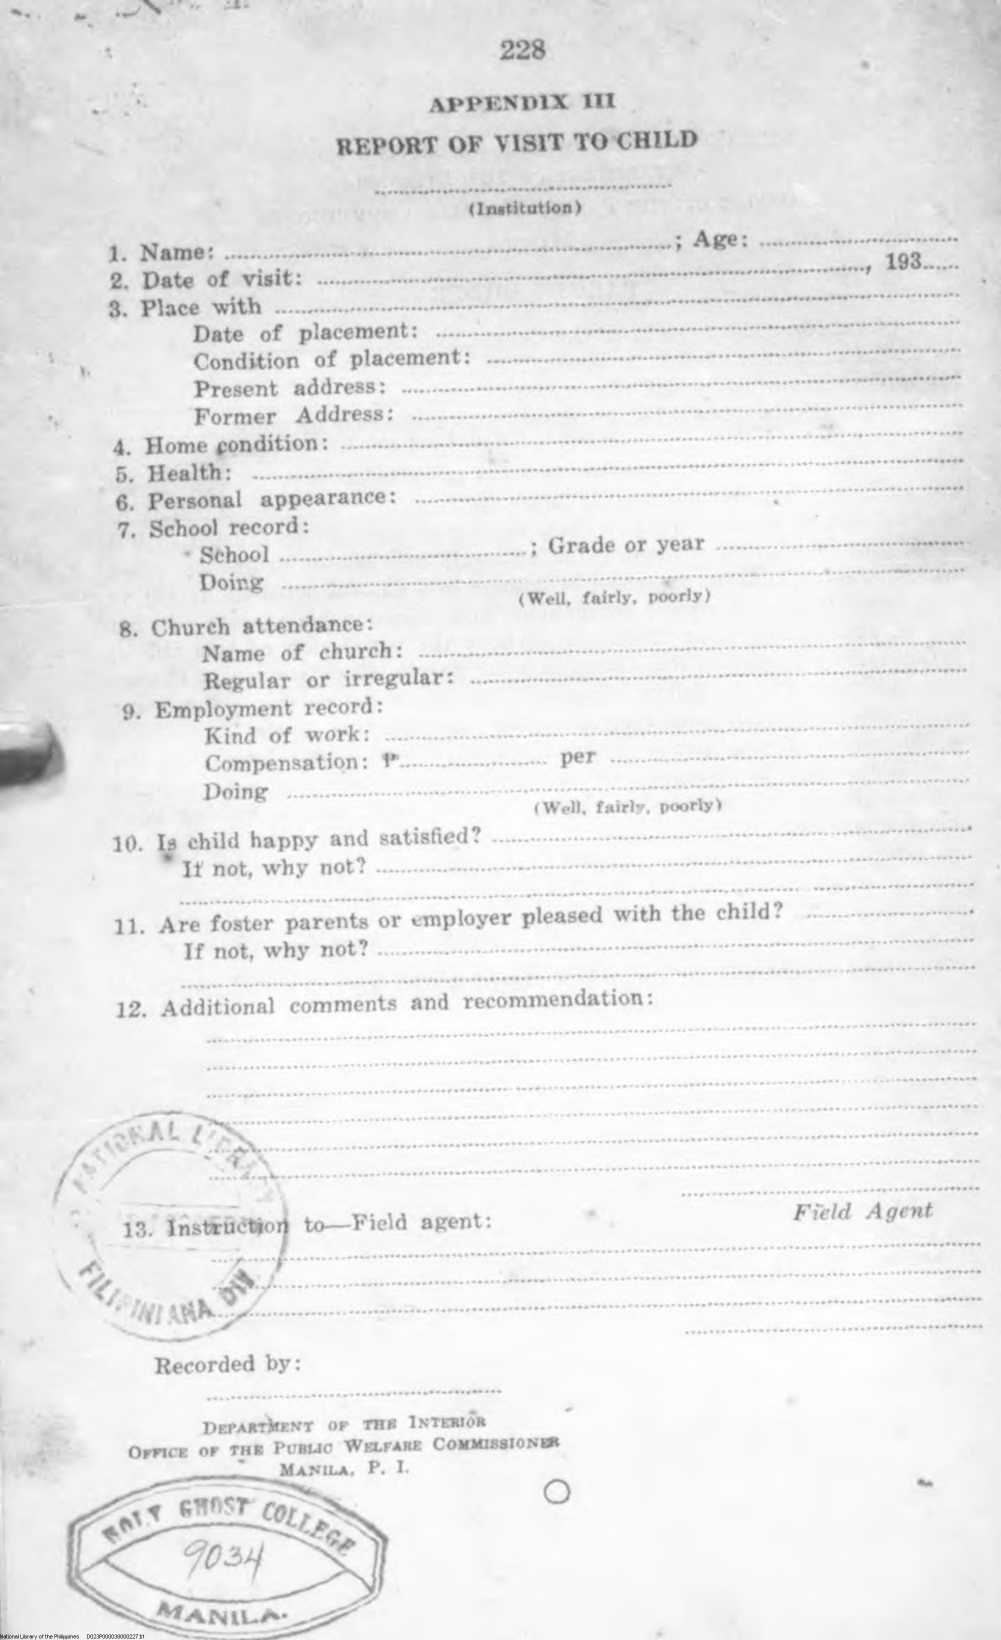 228
APPENDIX III
REPORT OF VISIT TO CHILD
(Institution)
1. Name: ; Age:
2. Date of visit: , 193
3. Place with
Date of placement:
Condition of placement:
Present address:
Former Address:
4. Home condition:
5. Health:
6. Personal appearance:
7. School record:
School ; Grade or year
Doing
(Well, fairly, poorly)
8. Church attendance:
Name of church:
Regular or irregular:
9. Employment record:
Kind of work:
Compensation: ₱ per
Doing
(Well, fairly, poorly)
10. Is child happy and satisfied?
If not, why not?
11. Are foster parents or employer pleased with the child?
If not, why not?
12. Additional comments and recommendation:
Field Agent
13. Instruction to—Field agent:
NATIONAL LIBRARY
FILIPINIANA DIV.
Recorded by:
DEPARTMENT OF THE INTERIOR
OFFICE OF THE PUBLIC WELFARE COMMISSIONER
MANILA, P. I.
HOLY GHOST COLLEGE
9034
MANILA.
National Library of the Philippines